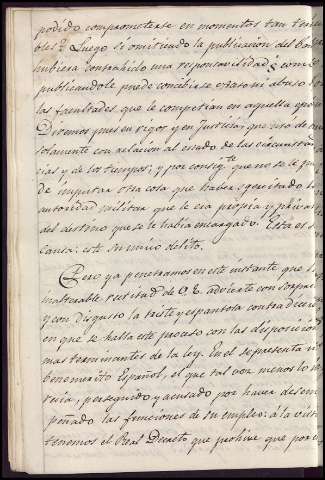 podido comprometerse en momentos tan terri
bles? Luego si omitiendo la publicacion del ban
hubiera contrahido una responsavilidad ¿como
publicandole puede concebirse exceso ni abuso de
las facultades que le competian en aquella epoca
Diremos pues en rigor y en Justicia, que usó de
solamente con relacion al estado de las circunstan
cias y de los tiempos; y por consigte que no se le pue
de imputar otra cosa que haver egercitado la
autoridad militar que le era propia y privati
del destino que se le habia encargado. Esta es su
causa: este su unico delito.
Pero ya penetramos en este instante que la
inalterable rectitud de V.E. advierte con sorpresa
y con disgusto la triste y espantosa contradiccion
en que se halla este proceso con las disposicion
mas terminantes de la ley. En el se presenta un
benemerito Español, el que tal vez menos lo me
recia, perseguido y acusado por haver desem
peñado las funciones de su empleo: á la vista
tenemos el Real Decreto que prohive que por